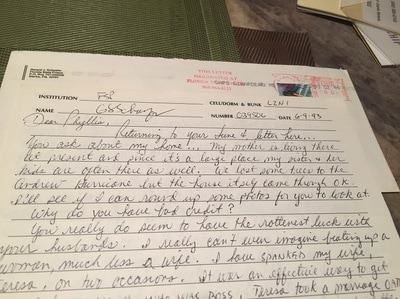 THIS LETTER
ORIGINATED AT
FLORIDA
INSTITUTION FSP CELL/DORM & BUNK L2N1
NAME NUMBER 034506 DATE 6-9-93
Dear Phyllis,
Returning to your June 2 letter here...
You ask about my home... My mother is living there
at present and since it's a large place my sister & her
kids are often there as well. We lost some trees to the
Andrew Hurricane but the house itself came through ok.
I'll see if I can round up some photos for you to look at.
Why do you have bad credit?
You really do seem to have the rottenest luck with
your husbands. I really can't even imagine beating up a
woman, much less a wife. I have spanked my wife,
Teresa, on two occasions. It was an effective way to get
was BOSS. Teresa took a massage